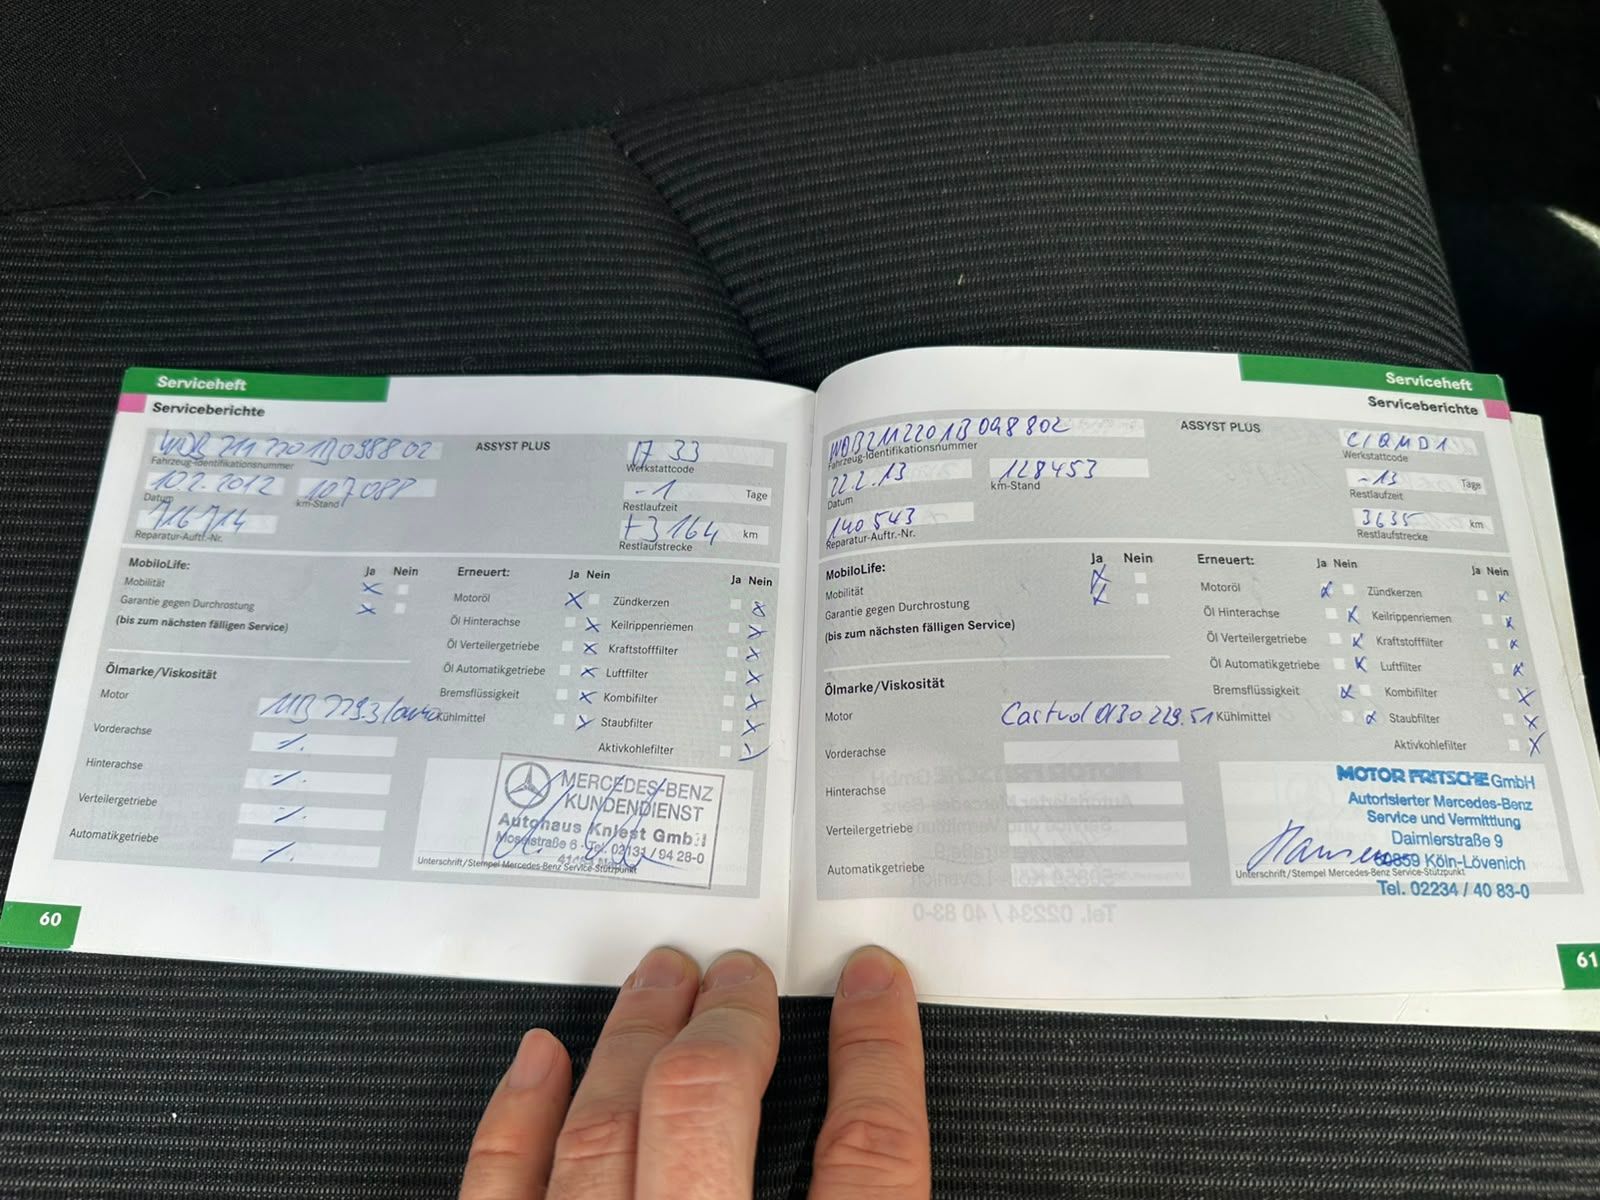 Serviceheft
Serviceberichte
ASSYST PLUS
Fahrzeug-Identifikationsnummer
17 33
Werkstattcode
10.2.2012
Datum
km-Stand
-1 Tage
Restlaufzeit
716714
Reparatur-Auftr.-Nr.
+3164 km
Restlaufstrecke
MobiloLife:
Ja Nein
Mobilität
Garantie gegen Durchrostung
(bis zum nächsten fälligen Service)
Erneuert:
Ja Nein
Ja Nein
Motoröl
Zündkerzen
Öl Hinterachse
Keilrippenriemen
Öl Verteilergetriebe
Kraftstofffilter
Öl Automatikgetriebe
Luftfilter
Bremsflüssigkeit
Kombifilter
Kühlmittel
Staubfilter
Aktivkohlefilter
Ölmarke/Viskosität
Motor
MB 229.3
Vorderachse
Hinterachse
Verteilergetriebe
Automatikgetriebe
MERCEDES-BENZ
KUNDENDIENST
Autohaus Kniest GmbH
Moselstraße 6 · Tel. 02131 / 94 28-0
Unterschrift/Stempel Mercedes-Benz Service-Stützpunkt
60
Serviceheft
Serviceberichte
WDB2112201B098802
Fahrzeug-Identifikationsnummer
ASSYST PLUS
Werkstattcode
22.2.13
Datum
128453
km-Stand
-13 Tage
Restlaufzeit
140 543
Reparatur-Auftr.-Nr.
3635 km
Restlaufstrecke
MobiloLife:
Ja Nein
Mobilität
Garantie gegen Durchrostung
(bis zum nächsten fälligen Service)
Erneuert:
Ja Nein
Ja Nein
Motoröl
Zündkerzen
Öl Hinterachse
Keilrippenriemen
Öl Verteilergetriebe
Kraftstofffilter
Öl Automatikgetriebe
Luftfilter
Bremsflüssigkeit
Kombifilter
Kühlmittel
Staubfilter
Aktivkohlefilter
Ölmarke/Viskosität
Motor
Castrol 0W30 229.51
Vorderachse
Hinterachse
Verteilergetriebe
Automatikgetriebe
MOTOR FRITSCHE GmbH
Autorisierter Mercedes-Benz
Service und Vermittlung
Daimlerstraße 9
50859 Köln-Lövenich
Unterschrift/Stempel Mercedes-Benz Service-Stützpunkt
Tel. 02234 / 40 83-0
61